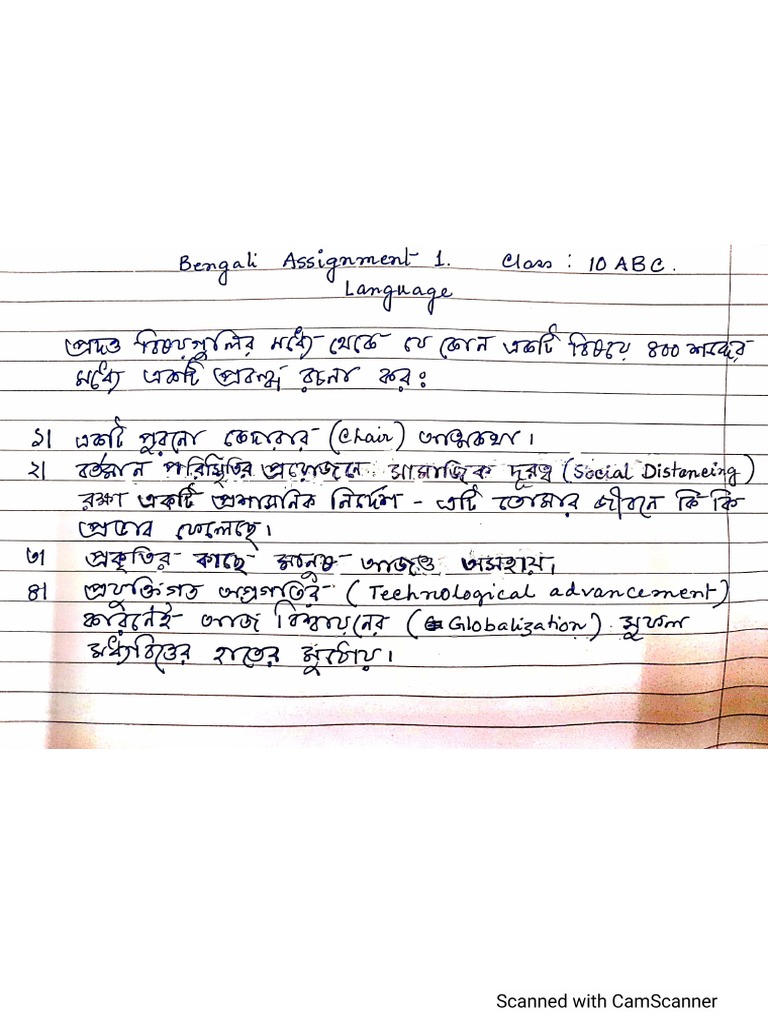 Bengali Assignment 1. Class : 10 ABC.
Language
প্রদত্ত বিষয়গুলির মধ্যে থেকে যে কোন একটি বিষয়ে ৪০০ শব্দের
মধ্যে একটি প্রবন্ধ রচনা কর :
১। একটি পুরনো কেদারার (Chair) আত্মকথা।
২। বর্তমান পরিস্থিতির প্রয়োজনে সামাজিক দূরত্ব (Social Distancing)
রক্ষা একটি প্রশাসনিক নির্দেশ - এটি তোমার জীবনে কি কি
প্রভাব ফেলেছে।
৩। প্রকৃতির কাছে মানুষ আজও অসহায়।
৪। প্রযুক্তিগত অগ্রগতির (Technological advancement)
কারনেই আজ বিশ্বায়নের (Globalization) সুফল
মধ্যবিত্তের হাতের মুঠোয়।
Scanned with CamScanner